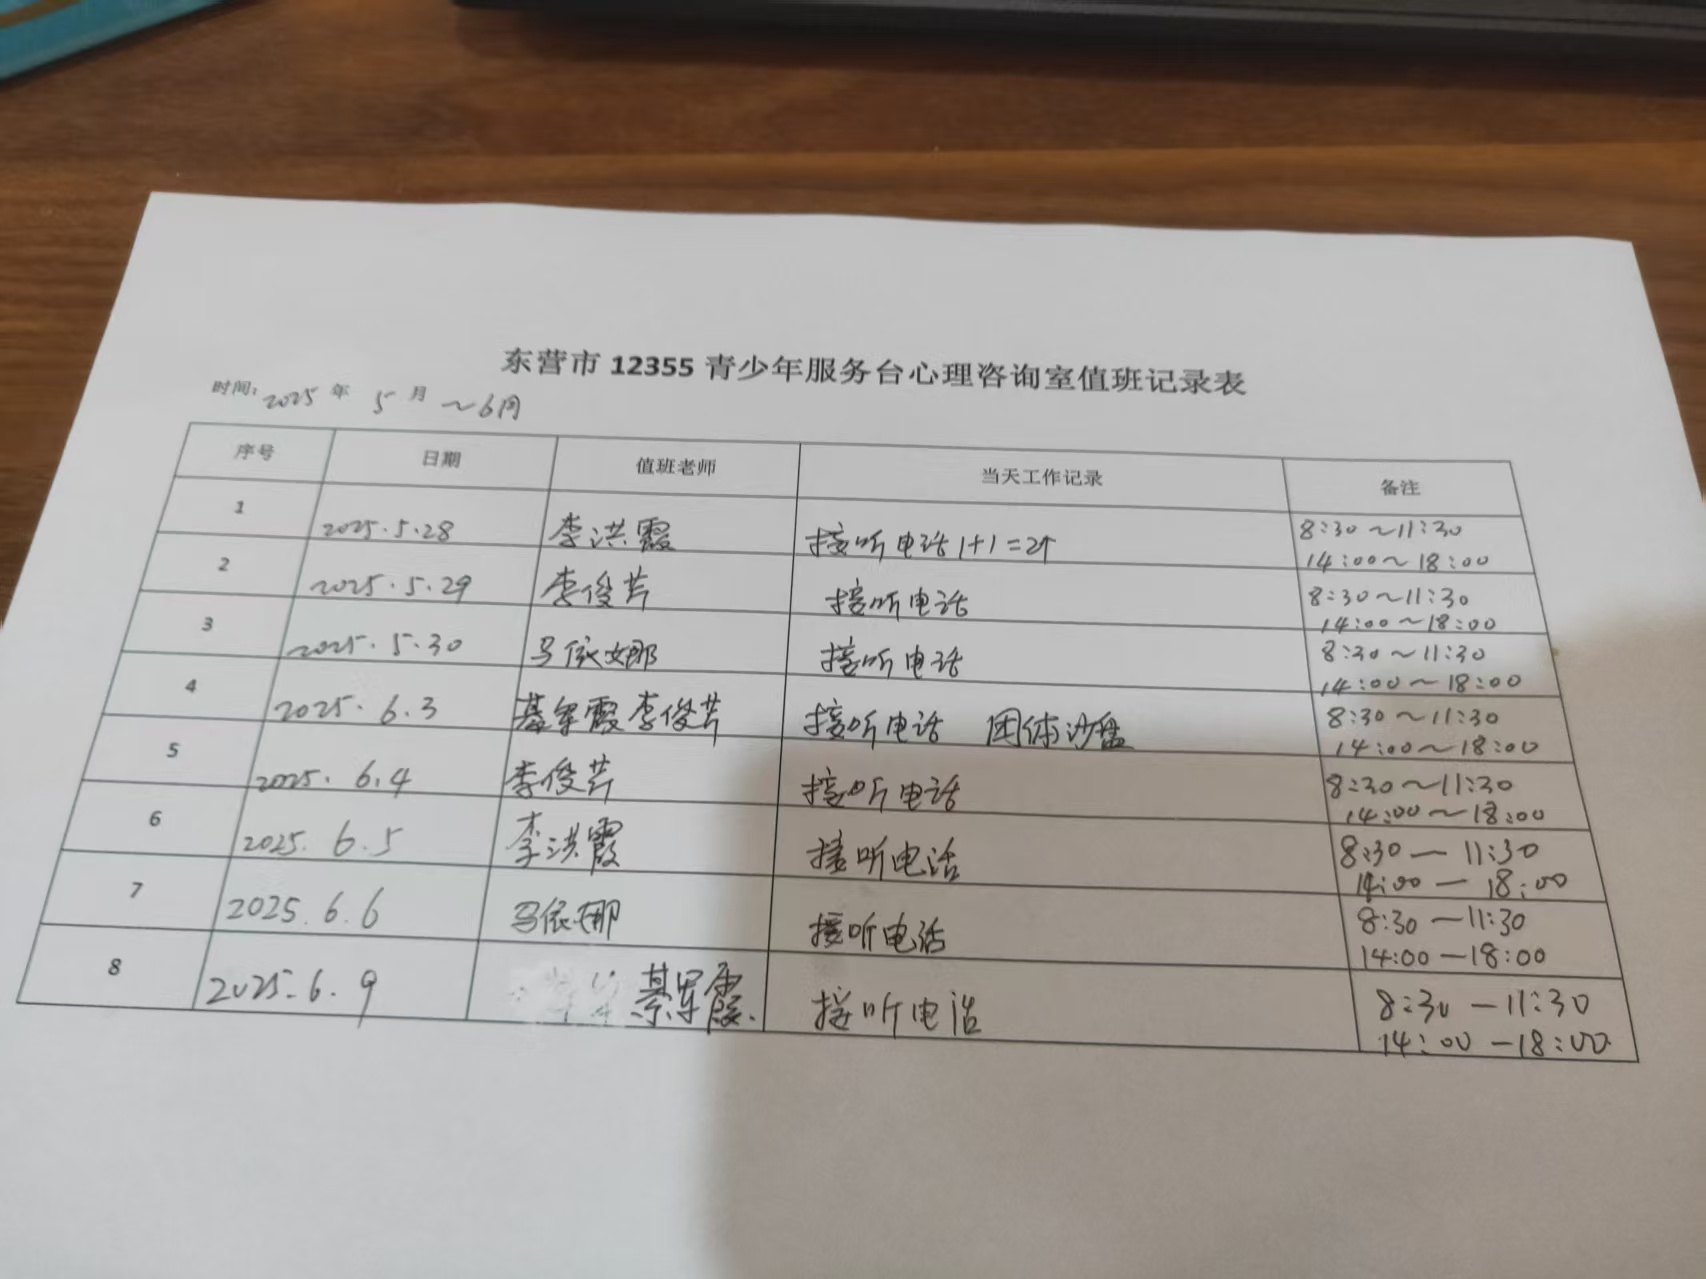 东营市 12355 青少年服务台心理咨询室值班记录表
时间: 2025 年 5 月 ～6月
序号 日期 值班老师 当天工作记录 备注
1 2025.5.28 李洪霞 接听电话 1+1=2个 8:30～11:30
14:00～18:00
2 2025.5.29 李俊芹 接听电话 8:30～11:30
14:00～18:00
3 2025.5.30 马依娜 接听电话 8:30～11:30
14:00～18:00
4 2025.6.3 綦军霞 李俊芹 接听电话 团体沙盘 8:30～11:30
14:00～18:00
5 2025.6.4 李俊芹 接听电话 8:30～11:30
14:00～18:00
6 2025.6.5 李洪霞 接听电话 8:30—11:30
14:00—18:00
7 2025.6.6 马依娜 接听电话 8:30—11:30
14:00—18:00
8 2025.6.9 綦军霞. 接听电话 8:30—11:30
14:00—18:00